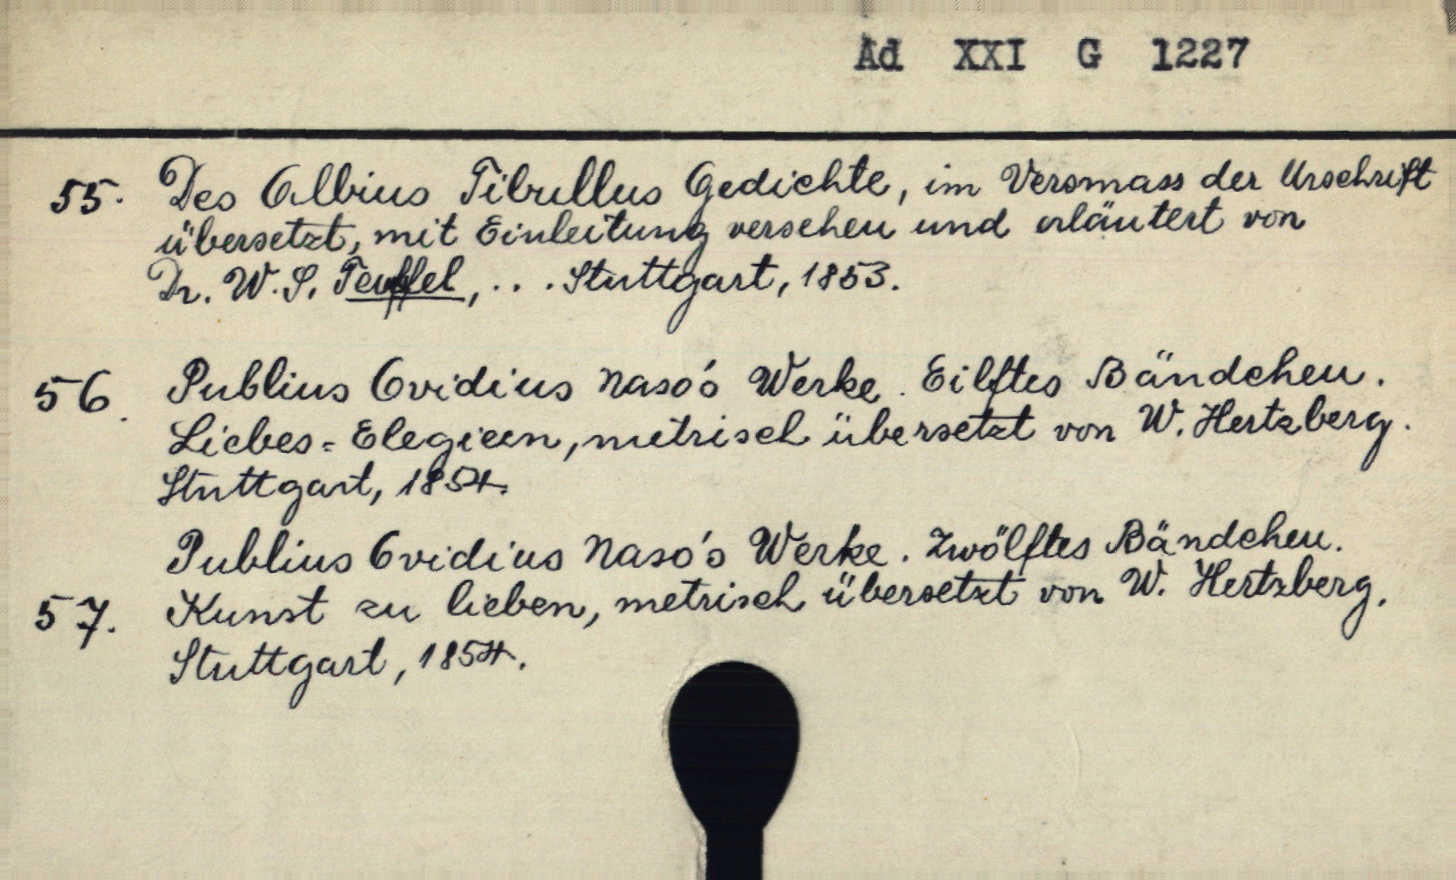 Ad XXI G 1227
55. Des Albius Tibullus Gedichte, im Versmass der Urschrift
übersetzt, mit Einleitung versehen und erläutert von
Dr. W. S. Teuffel, . . . Stuttgart, 1853.
56. Publius Ovidius Naso's Werke. Eilftes Bändchen.
Liebes-Elegieen, metrisch übersetzt von W. Hertzberg.
Stuttgart, 1854.
Publius Ovidius Naso's Werke. Zwölftes Bändchen.
57. Kunst zu lieben, metrisch übersetzt von W. Hertzberg.
Stuttgart, 1854.